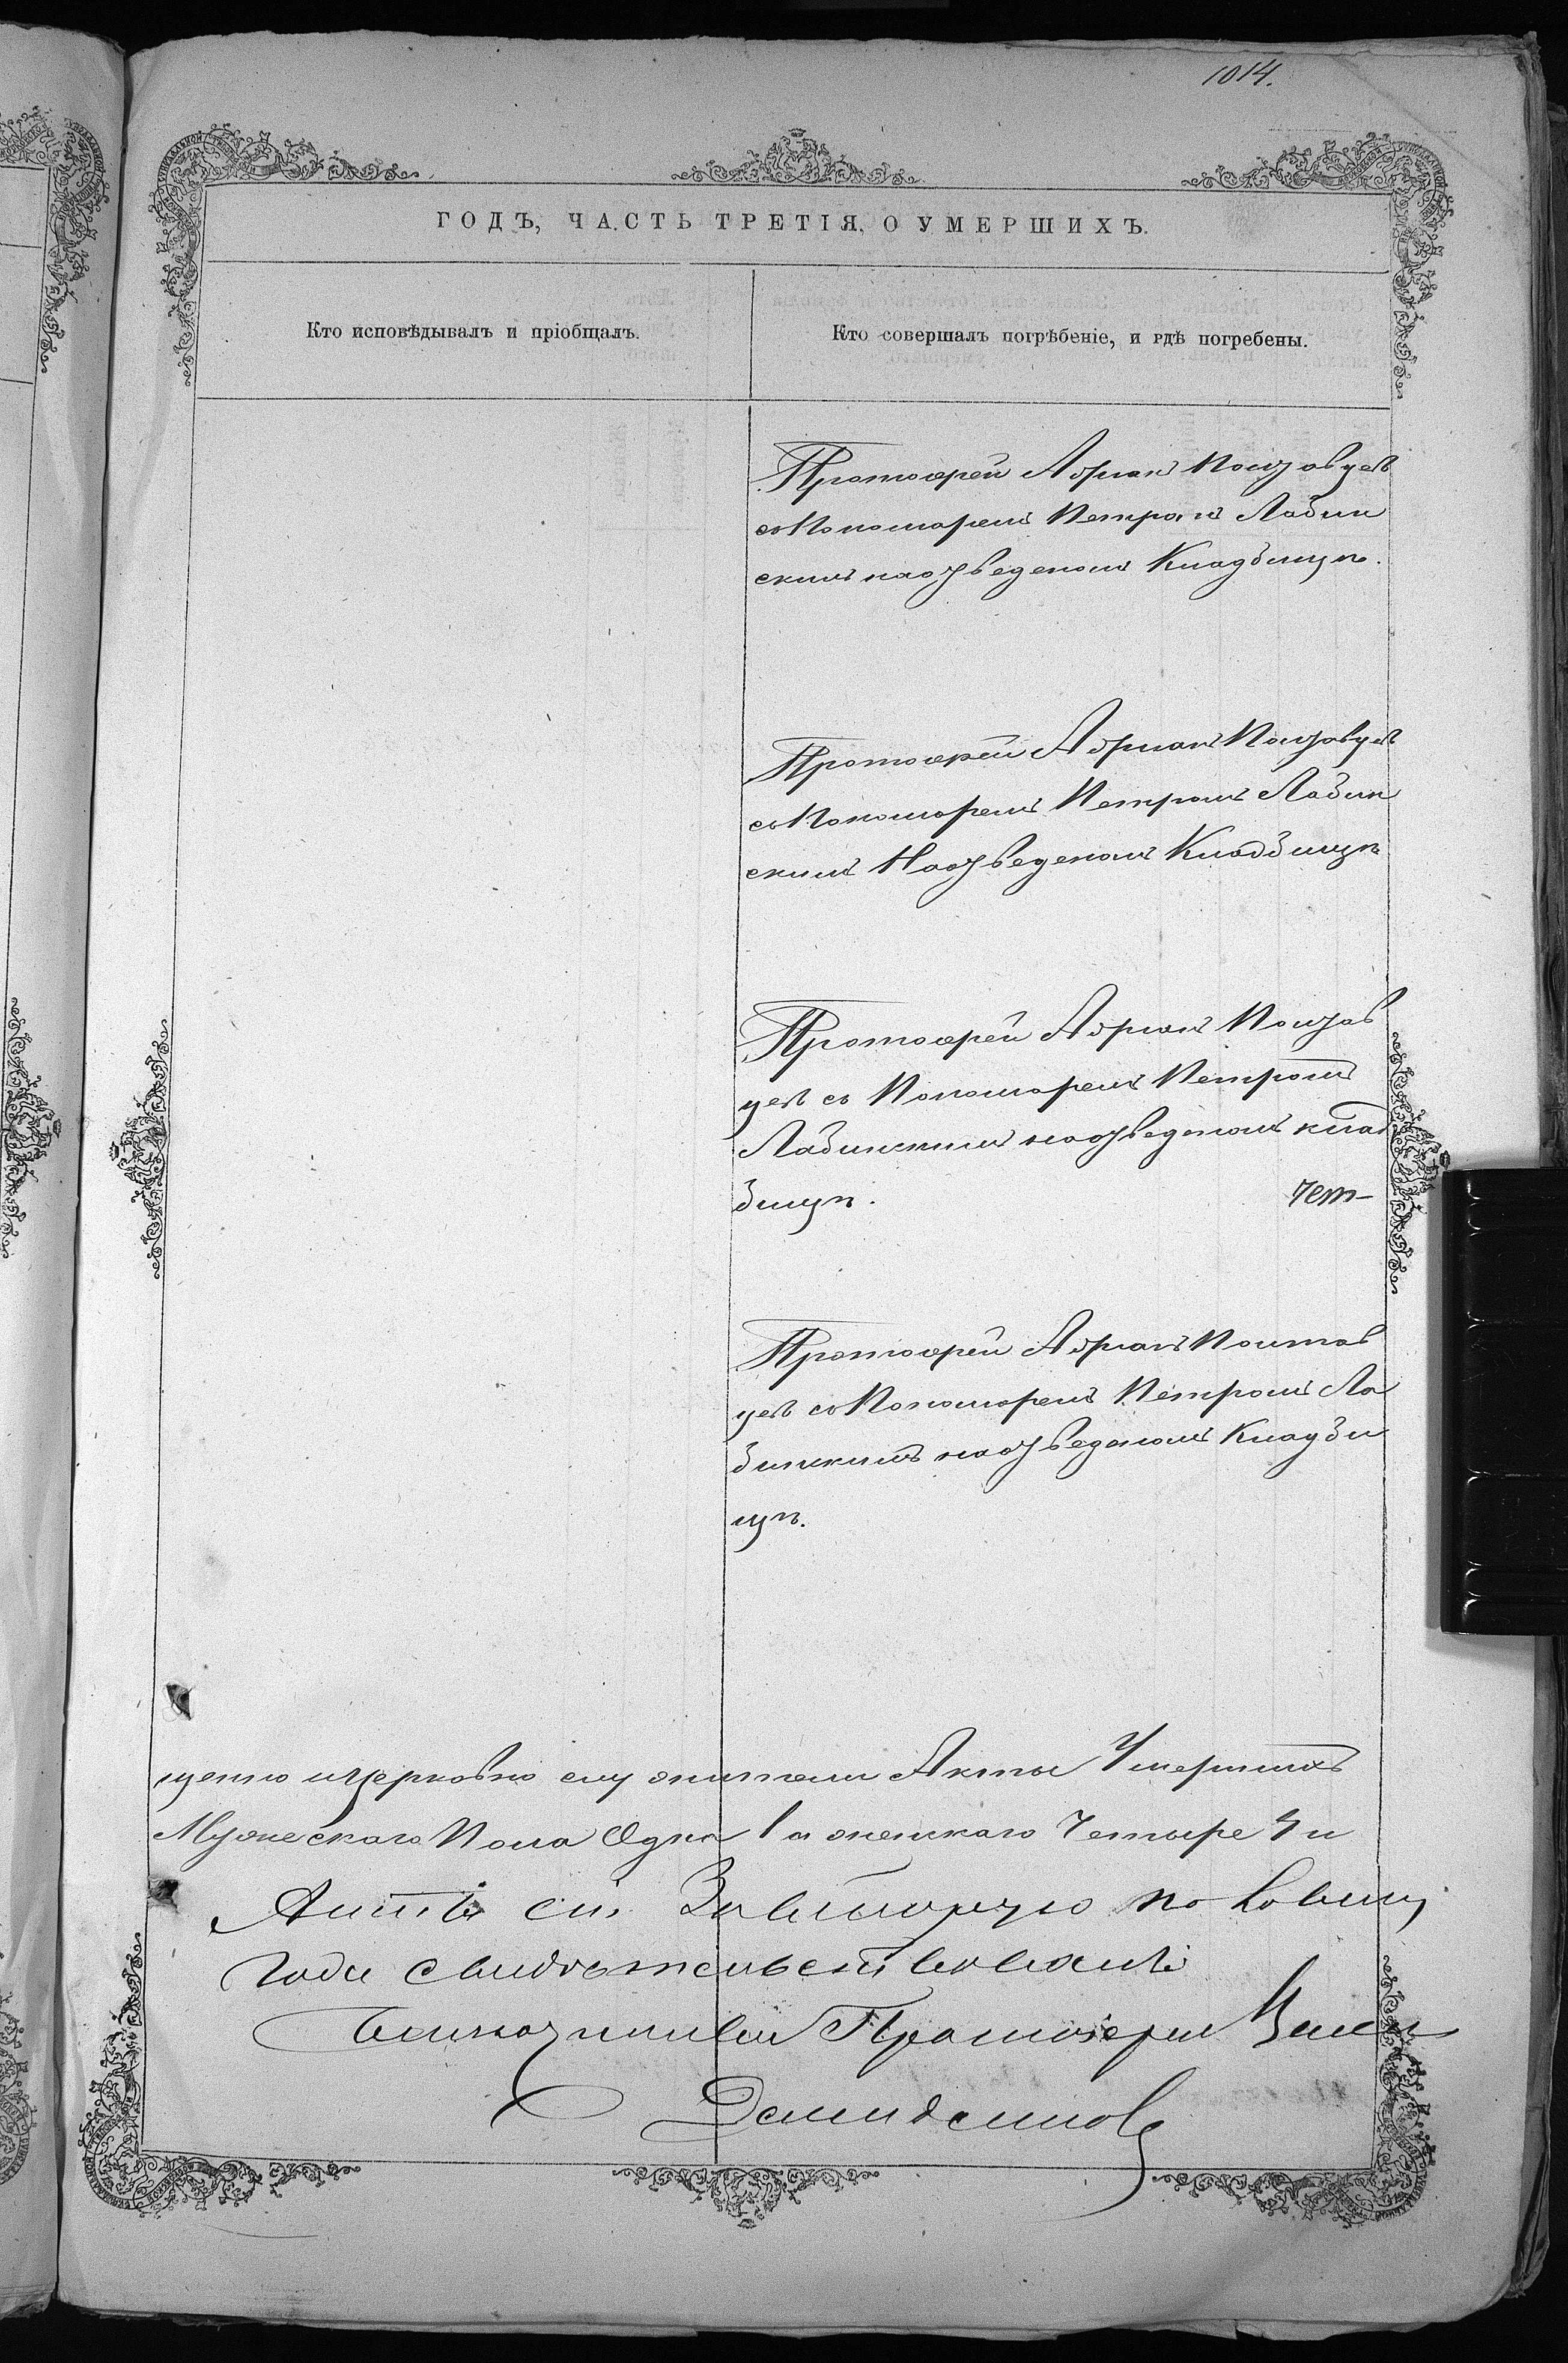 1014.
ГОДЪ, ЧАСТЬ ТРЕТІЯ, О УМЕРШИХЪ.
Кто исповѣдывалъ и пріобщалъ.
Кто совершалъ погрѣбеніе, и гдѣ погребены.
Протоіерей Адріанъ
съ Пономаремъ Петромъ Лабин
скимъ на отведеномъ Кладбищѣ.
Протоіерей Адріанъ
съ Пономаремъ Петромъ Лабин
скимъ На отведеномъ Кладбищѣ
Протоіерей Адріанъ
съ Пономаремъ Петромъ
Лабинскимъ на отведеномъ клад
бищѣ.
чет-
Протоіерей Адріанъ
съ Пономаремъ Петромъ Ла
бинскимъ на отведеномъ Кладби
щѣ.
щенно и церковно служители Акты Умершихъ
Мужескаго Пола Одна 1 а женскаго Четыре 4 и
года свидѣтельствовалъ
Благочинный Протоіерей